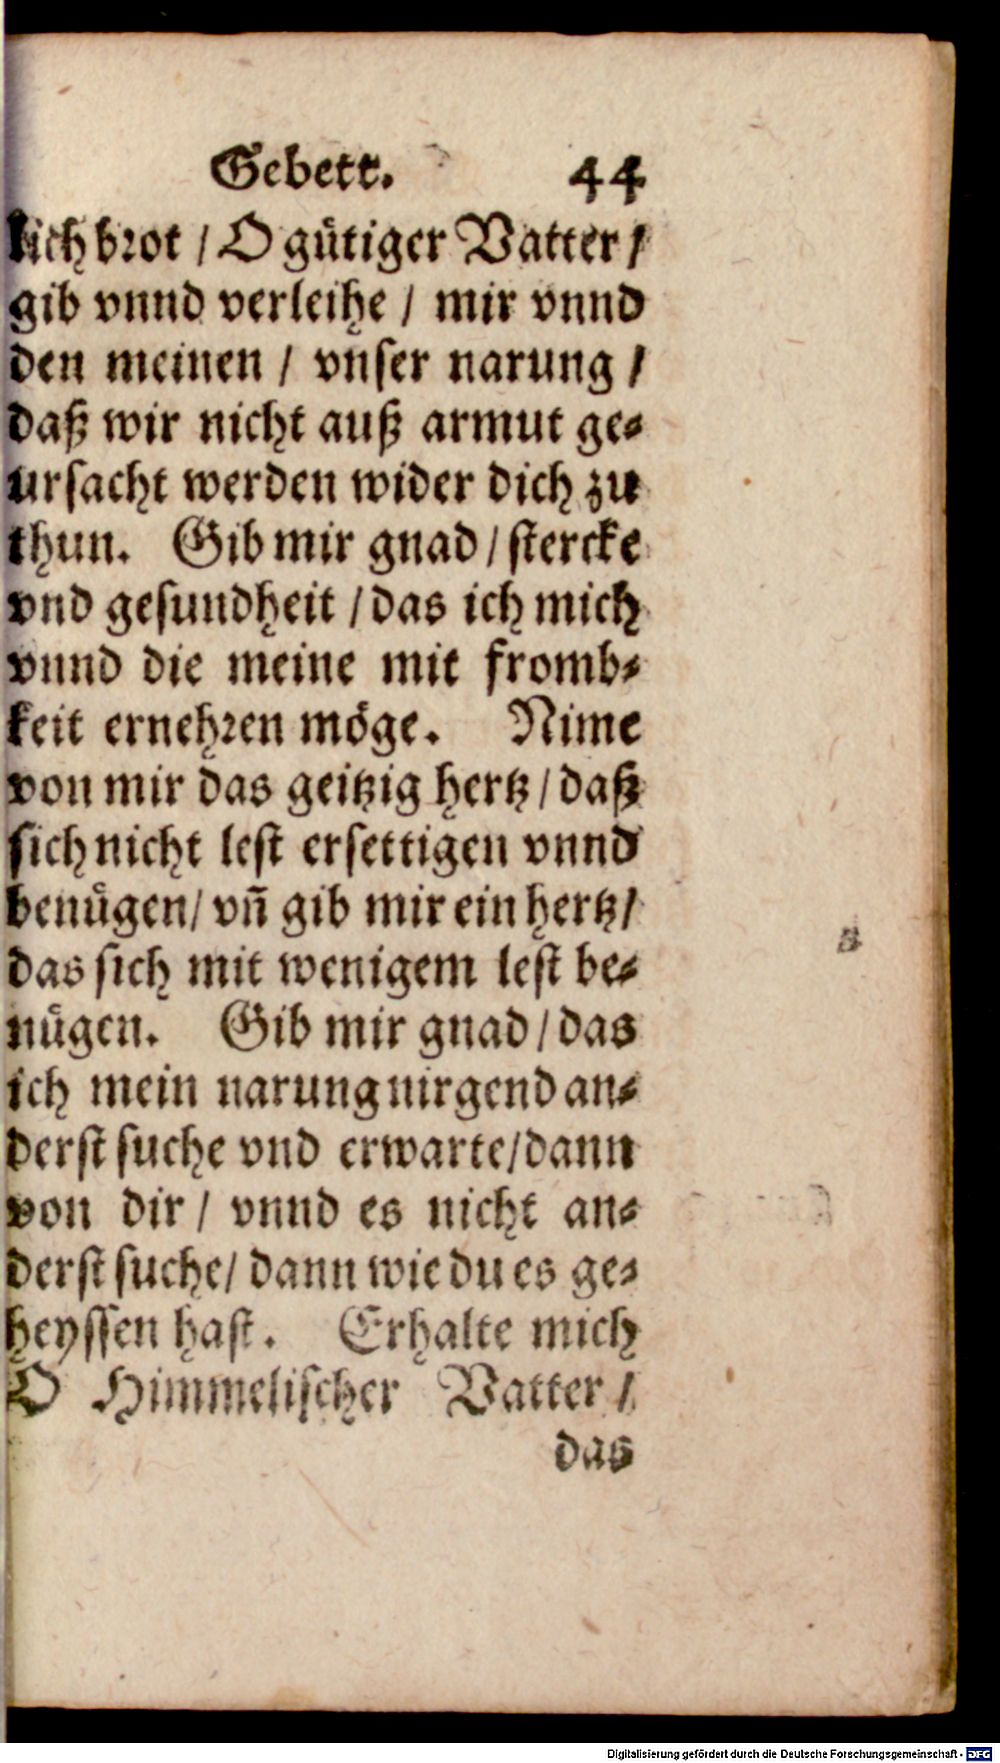 Gebett. 44
lich brot / O gütiger Vatter /
gib vnnd verleihe / mir vnnd
den meinen / vnser narung /
daß wir nicht auß armut ge-
ursacht werden wider dich zu
thun. Gib mir gnad / stercke
vnd gesundheit / das ich mich
vnnd die meine mit fromb-
keit ernehren möge. Nime
von mir das geitzig hertz / daß
sich nicht lest ersettigen vnnd
benügen / vñ gib mir ein hertz /
das sich mit wenigem lest be-
nügen. Gib mir gnad / das
ich mein narung nirgend an-
derst suche vnd erwarte / dann
von dir / vnnd es nicht an-
derst suche / dann wie du es ge-
heyssen hast. Erhalte mich
O Himmelischer Vatter /
das
Digitalisierung gefördert durch die Deutsche Forschungsgemeinschaft - DFG